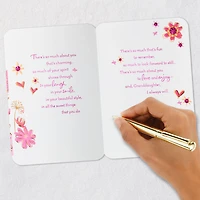 There's so much about you
that's charming,
so much of your spirit
shines through
in your laugh,
in your smile,
in your beautiful style,
in all the sweet things
that you do.
There's so much that's fun
to remember,
so much to look forward to still,
There's so much about you
to love and enjoy
and, Granddaughter,
I always will.